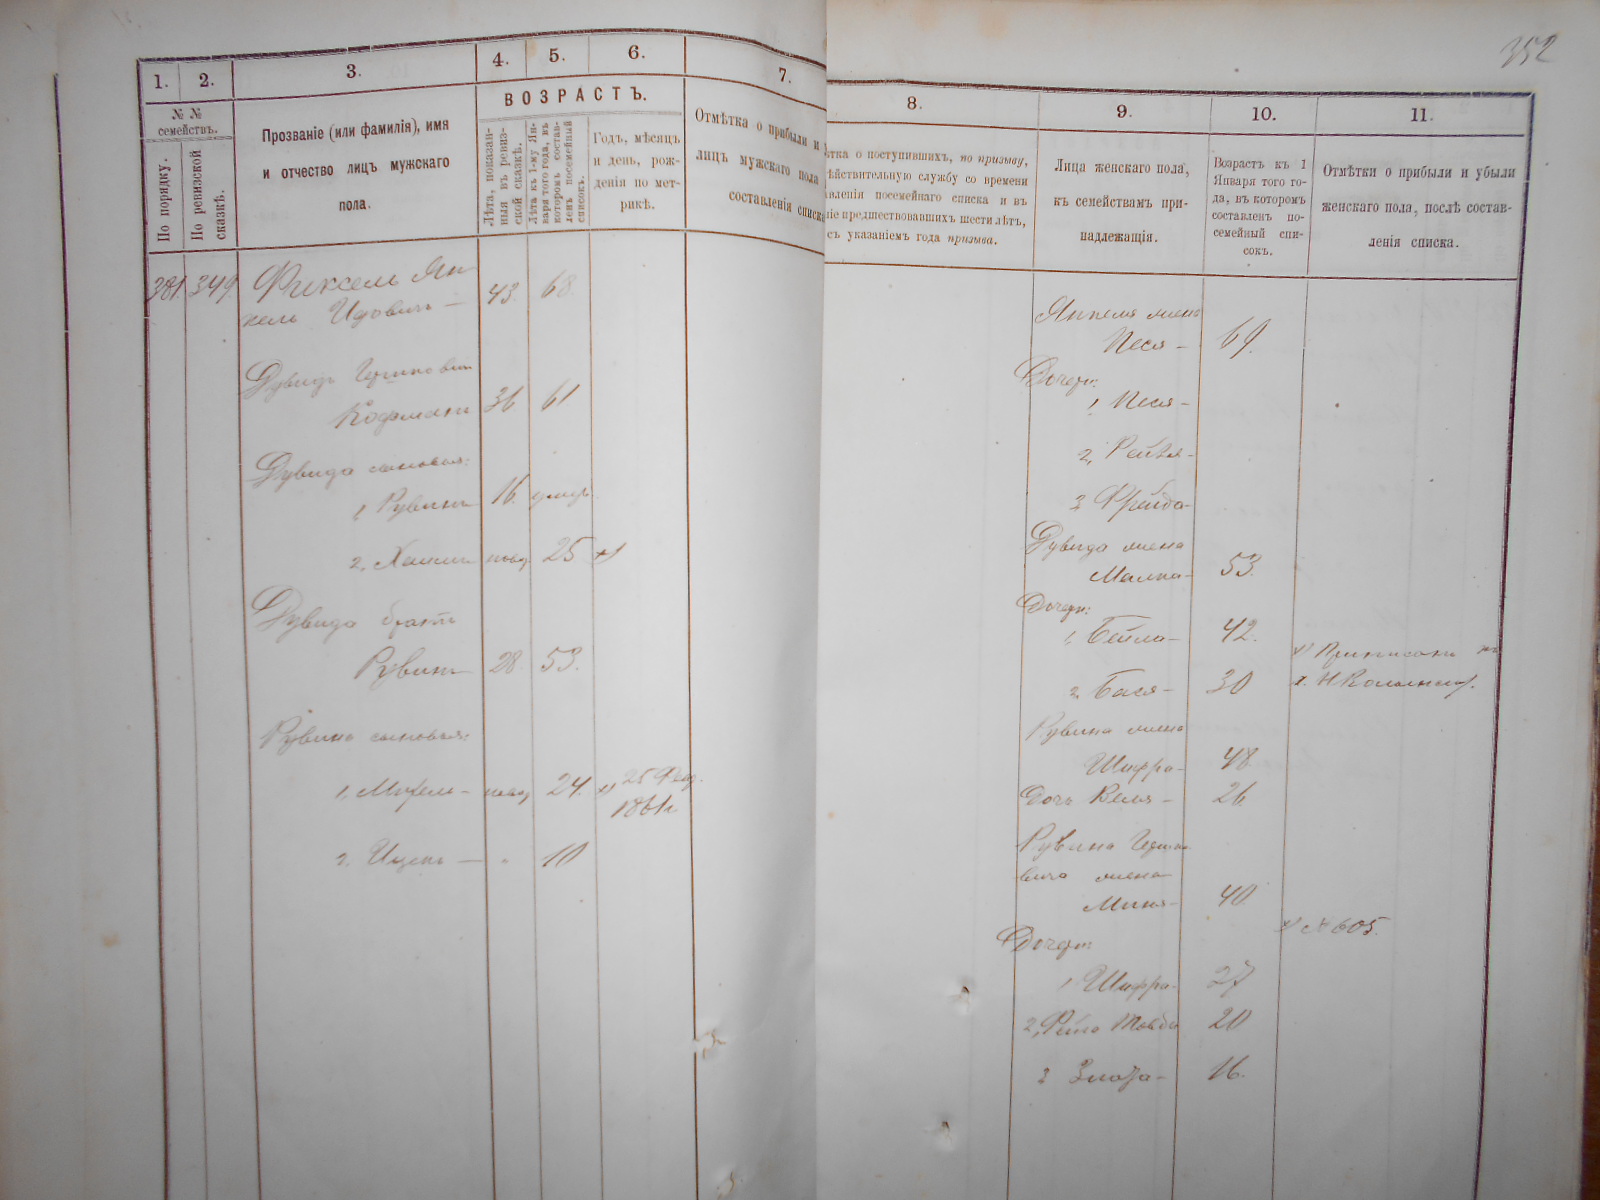 352
1. 2. 3. 4. 5. 6. 7.
№ №
семействъ.
По порядку.
По ревизской
сказкѣ.
Прозваніе (или фамилія), имя
и отчество лицъ мужскаго
пола.
ВОЗРАСТЪ.
Лѣта, показан-
ныя въ ревиз-
ской сказкѣ.
Лѣта къ 1-му Ян-
варя того года, въ
которомъ состав-
ленъ посемейный
списокъ.
Годъ, мѣсяцъ
и день, рож-
денія по мет-
рикѣ.
Отмѣтка о прибыли и
лицъ мужского пола
составленія списка
381. 349. Фиксель Ян
кель Идовичъ — 43. 68.
Дувидъ Гершковичъ
Кофманъ 36 61
Дувида сыновья:
1, Рувинъ 16. умеръ
2, Хаимъ 25 х)
Дувида братъ
Рувинъ 28. 53.
Рувина сыновья:
1, 24. х) 25
1861г
2. Ицекъ — " 10
8. 9. 10. 11.
тка о поступившихъ, по призыву,
ѣйствительную службу со времени
авленія посемейнаго списка и въ
ніе предшествовавшихъ шести лѣтъ,
съ указаніемъ года призыва.
Лица женскаго пола,
къ семействамъ при-
надлежащія.
Возрастъ къ 1
Января того го-
да, въ которомъ
составленъ по-
семейный спи-
сокъ.
Отмѣтки о прибыли и убыли
женскаго пола, послѣ состав-
ленія списка.
Янкеля жена
Песя — 69.
Дочери:
1, Песя —
2, Рейзя —
3, Фрейда —
Дувида жена
Малка — 53.
Дочери:
1, Бейла — 42.
2, Бася — 30
х) Приписана къ
Рувина жена
Шифра — 48
Дочь Веля — 26
Рувина Гершко
вича жена
Миня — 40
х) № 605.
Дочери:
1, Шифра — 27
2, 20
3 Злота — 16.